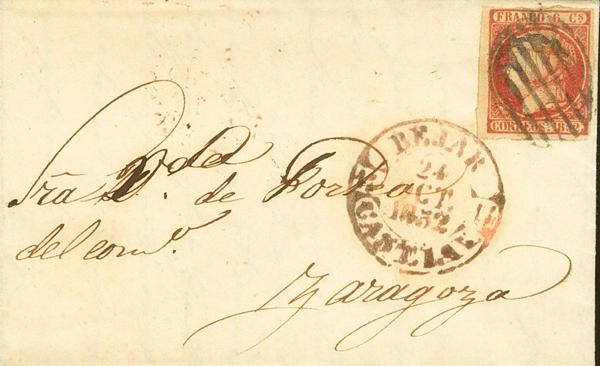 FRANCO 6 Cs
CORREOS 1852
BEJAR
24
OCT.
1852
CAST. LA V.
(12)
Sra Vda de
del como.
Zaragoza